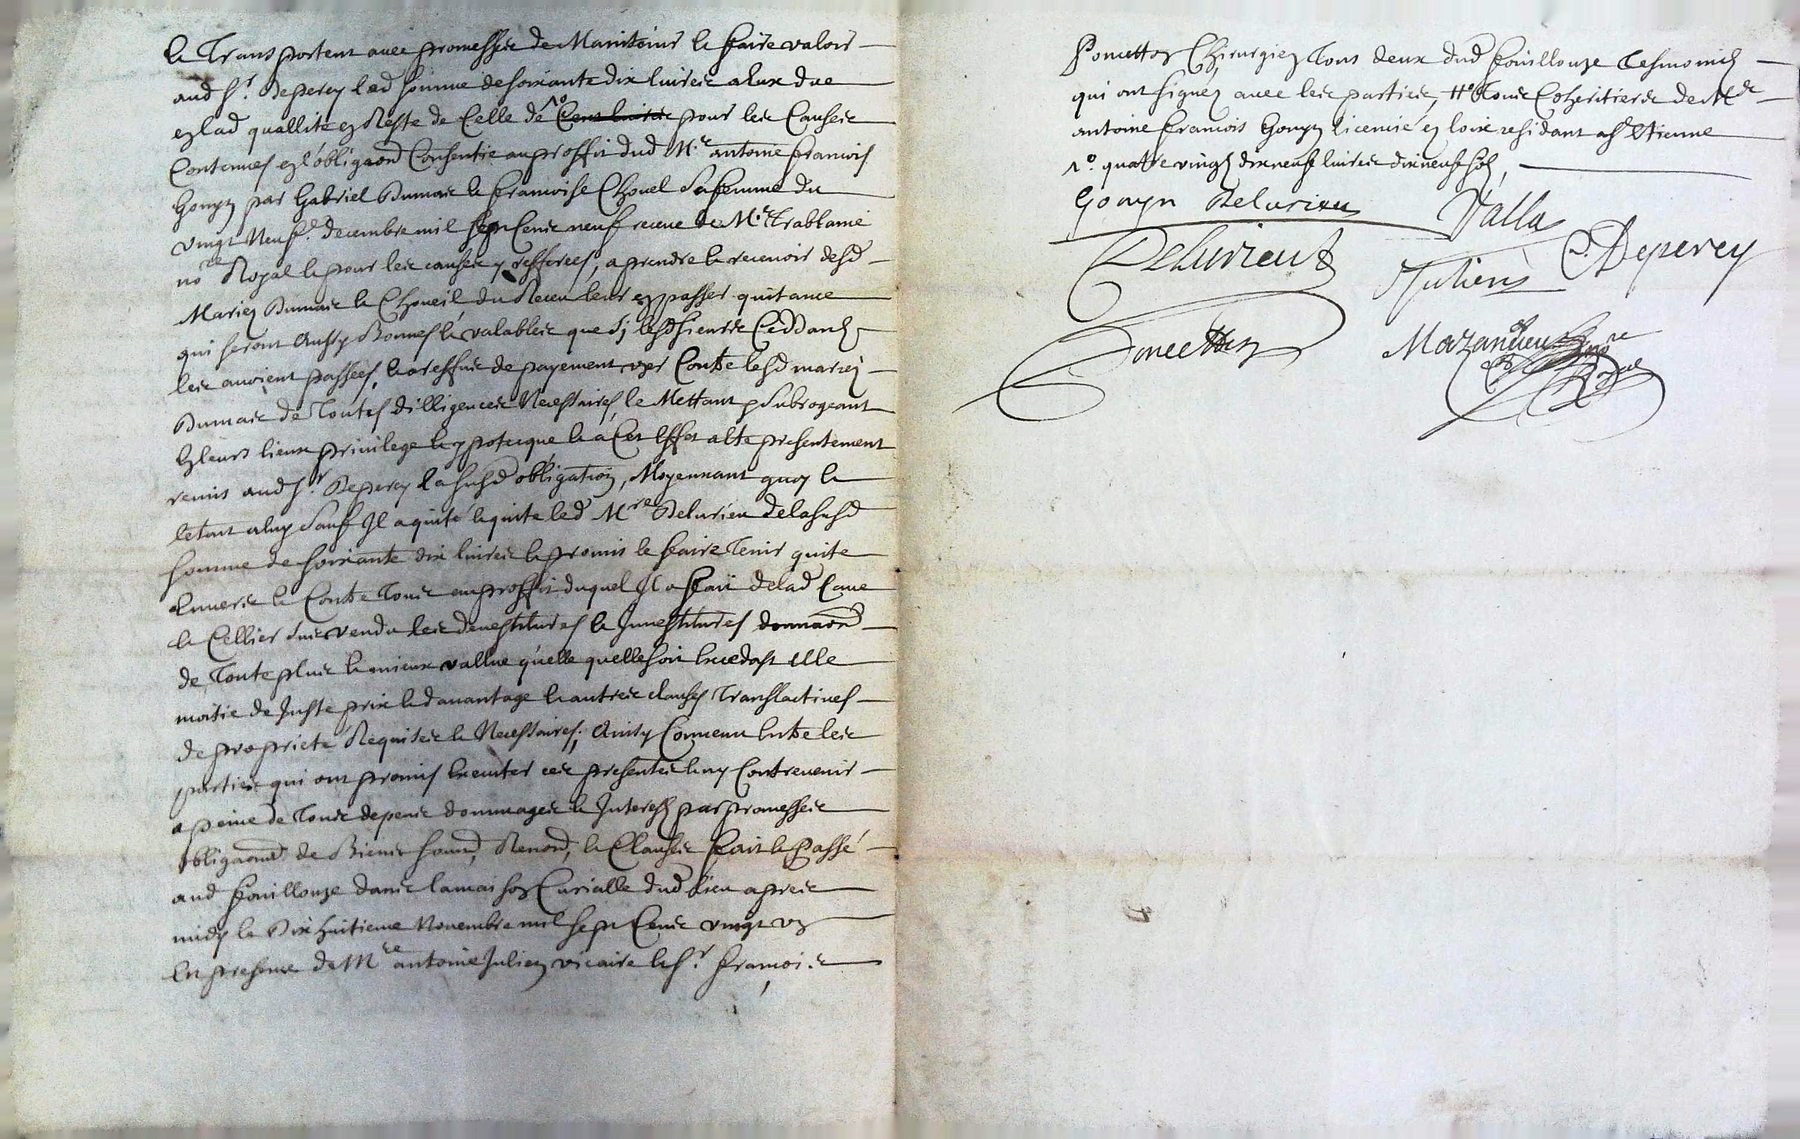 et Transportent avec promesses de Maintenir et faire valoir
aud Sr. Deperey lad somme de soixante dix livres a eux due
en lad quallité en Reste de Celle de 1º Cent livres pour les Causes
Contenues en l'obligaõn Consentie au proffit dud Me. antoine francois
Gonyn par Gabriel Dumas et francoise Chouel sa femme du
vingt Neufe. decembre mil sept Cens neuf receue de Me.
nore Royal et pour les causes y refferées, a prendre et recevoir desd
Mariez Dumas et du Receu leur en passer quitance
qui seront Aussy Bonnes et valables que sy lesd sieurs Ceddants
les avoient passées, et a reffus de payement user Contre lesd mariez
Dumas de Toutes dilligences Necessaires, le Mettant subrogeant
en leurs lieux privilege et ypoteque et a Cet Effet a été presentement
remis aud Sr. Deperey la susd obligation, Moyennant quoy et
l'etant aluy sauf Il a quité et quite led Mre Delurieu de la susd
somme de soixante dix livres et promis le faire Tenir quite
Envers et Contre Tous au proffit duquel Il a fait de lad Cave
et Cellier sus vendu les devestitures et Investitures donnaõn
de Toute plus et mieux vallue qu'elle quelle soit Excedast Elle
moitié de Juste prix et davantage et autres clauses Translatives
de propriété Requises et Necessaires, Ainsy Convenu Entre les
parties qui ont promis Executer ces presentes et ny Contrevenir
a peine de Tous depens dommages et Interests par promesses
obligaõns de Biens soumd, Renond, et Clauses fait et Passé
aud fouillouze dans la maison Curialle dud lieu apres
midy le Dix huitieme Novembre mil sept Cens vingt un
En presence de Mre antoine Julien vicaire et Sr. francois
Poncetton Chirurgien Tous deux dud fouillouze Tesmoins
qui ont signez avec les parties, Tous Coheritiers de Me
antoine francois Gonyn licencié en loix residant a St Etienne
1º quatre vingt dix neuf livres dix neuf sols,
Gonyn Delurieu Valla
Delurieux Julien C. Deperey
Poncetton Mazandieu